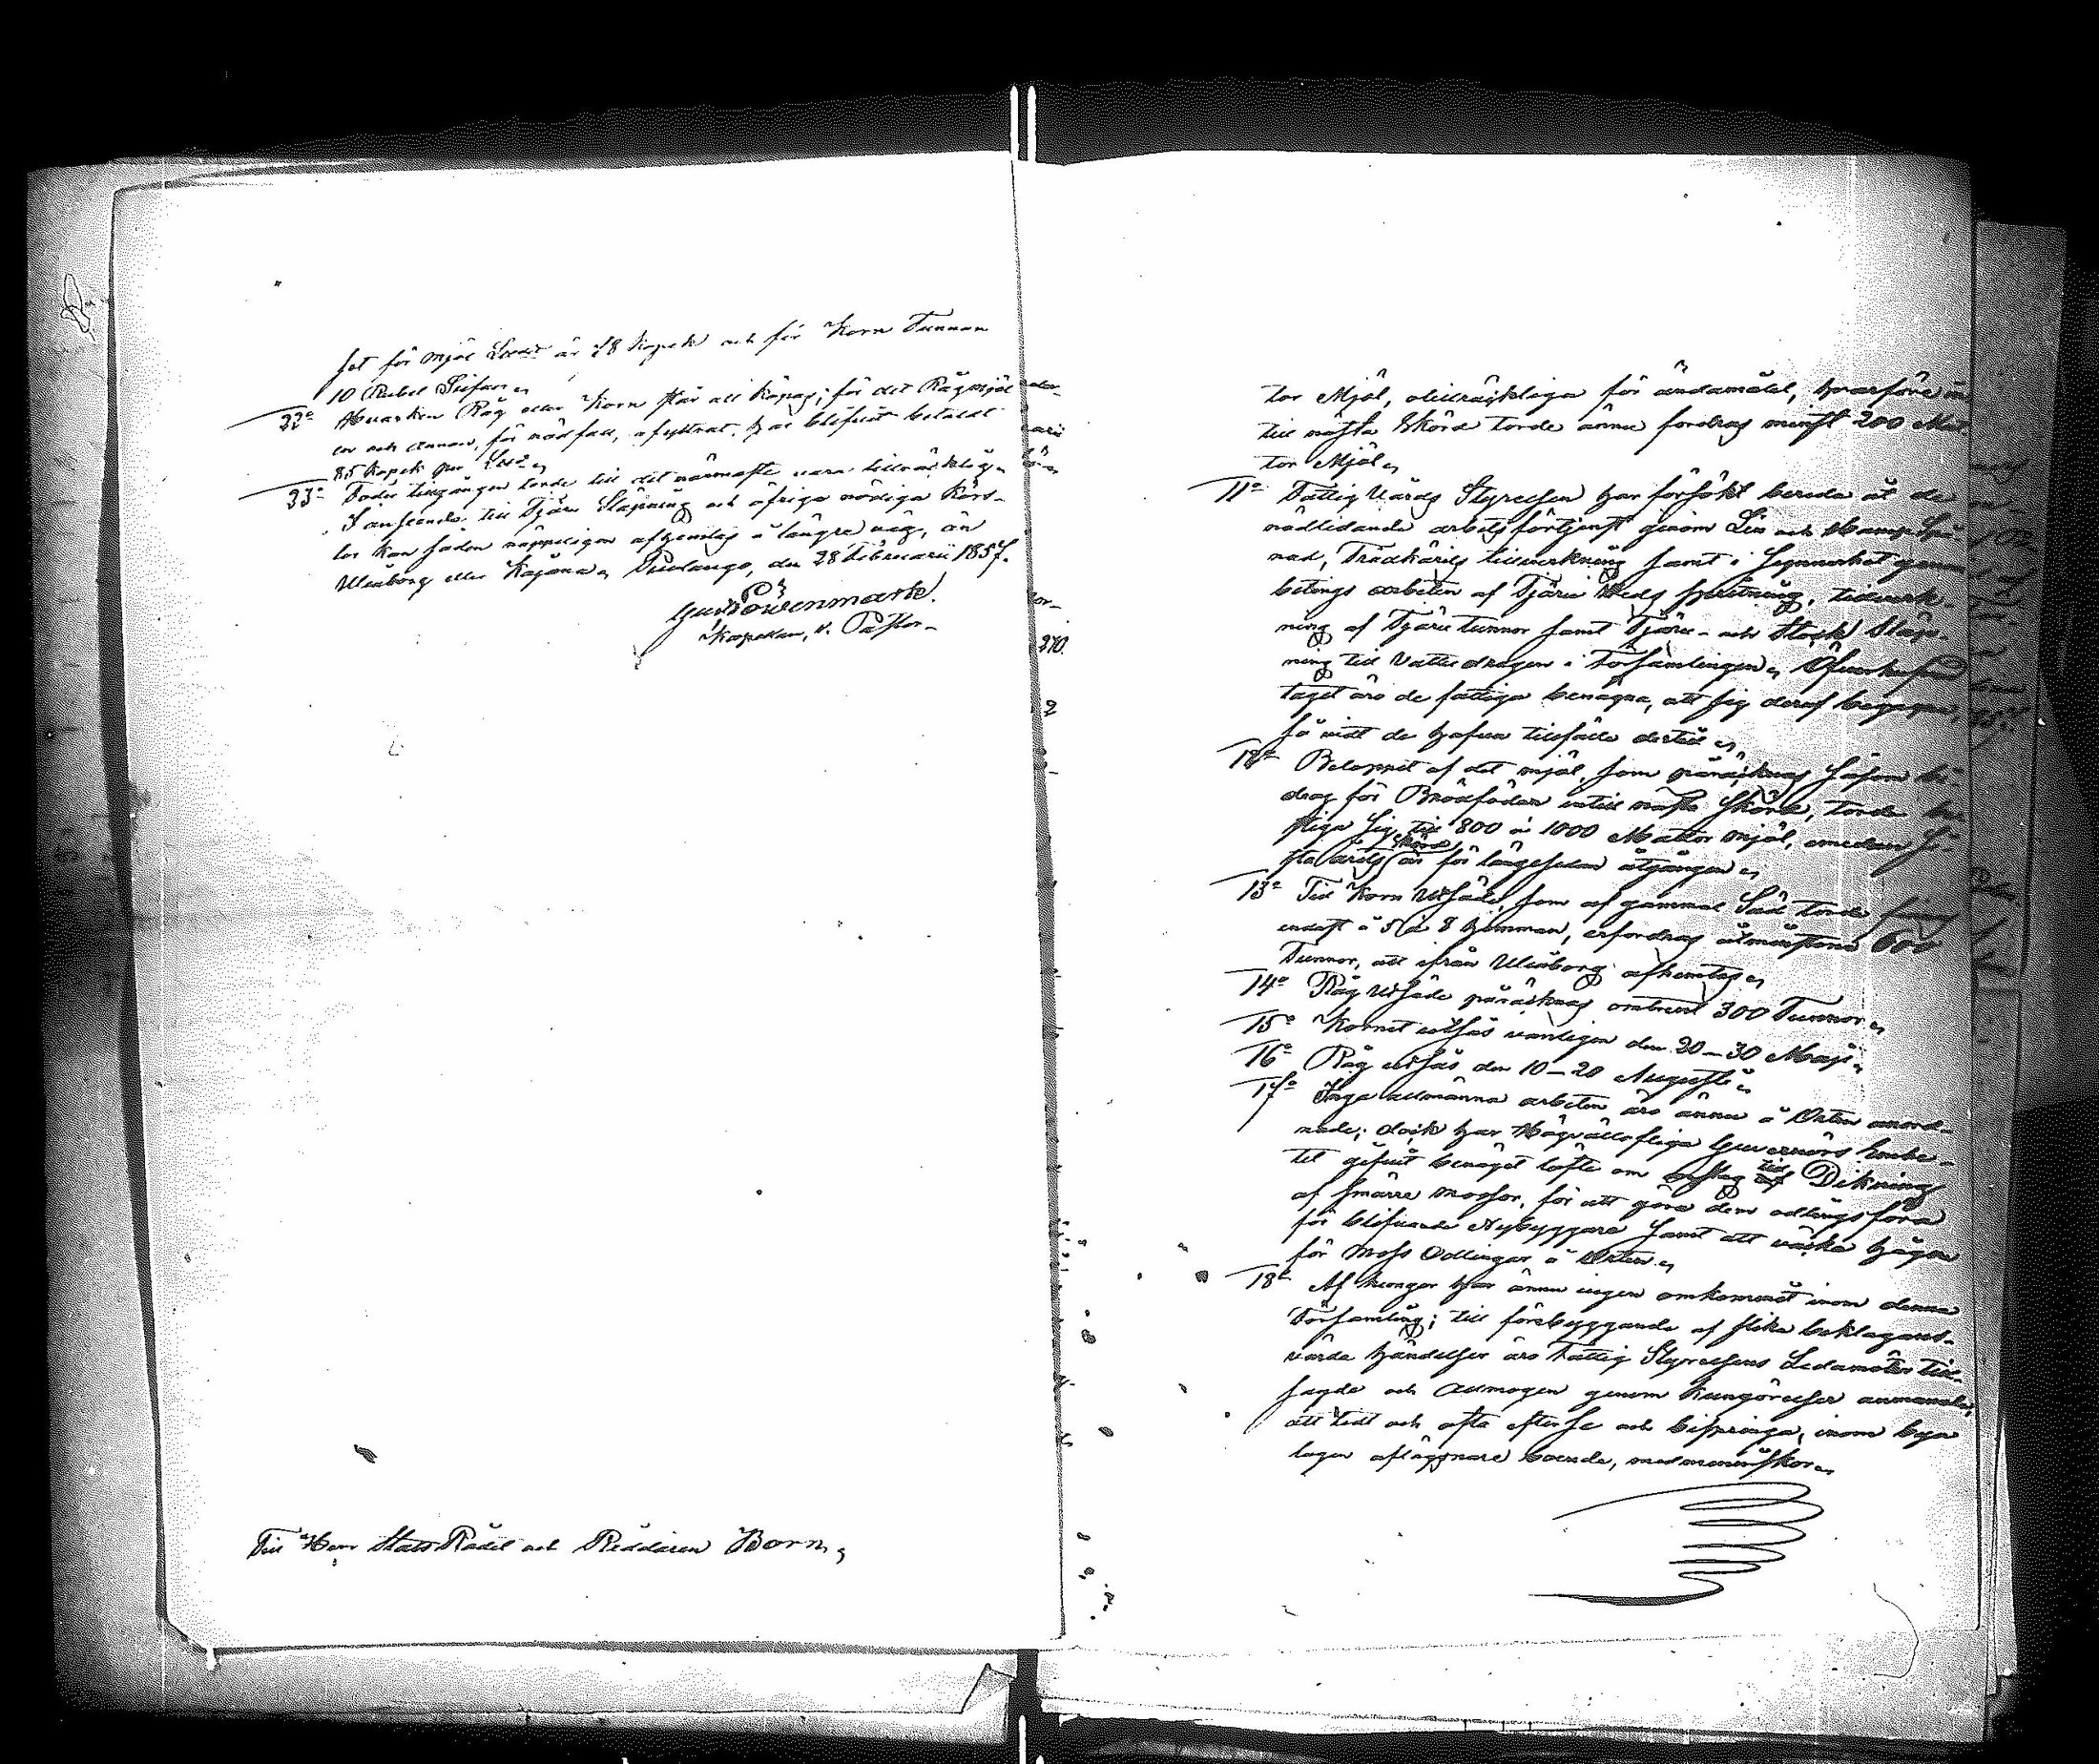 set för Mjöl Lisdt är 78 Kopek och för Korn Tunnan
10 Rubel Silfver.
22o Hvarken Råg eller Korn står att köpas; för det Rågmjöl
en och annan, för nödfall, afyttrat, har blifvit betaldt
85 Kopek per Lisd.
23o Foder tillgången torde till det närmaste vara tillräcklig.
I anseende till Tjäru Släpning och öfriga nödiga körs-
lor kan säden näppeligen afhemtas å längre väg, än
Uleåborg eller Kajana. Puolango, den 28 Februarii 1857.
Gust. Löwenmark.
Kapellan, v. Pastor.
Till Herr Stats Rådet och Riddaren Born.
tor Mjöl, otillräckliga för ändamålet, hvarföre in
till nästa Skörd torde ännu fordras minst 200 Mat-
tor Mjöl.
11o Fattig Vårds Styrelsen har försökt bereda åt de
nödlidande arbetsförtjenst genom Lin och Hamp Spå-
nad, Trädkärils tillverkning samt i synnerhet genom
betings arbeten af Tjäru Veds hyttning, tillverk-
ning af Tjäru tunnor samt Tjäru- och Stock Släp-
ning till Vattudragen i Församlingen. Öfverhufvud
taget äro de fattiga benägna, att sig deraf begagna,
så vidt de hafva tillfälle dertill.
12o Beloppet af det mjöl, som påräknas såsom bi-
drag för Brödfödan intill nästa Skörd, torde be
stiga sig till 800 à 1000 Mattor mjöl, emedan si-
sta årets skörd är för längesedan åtgången.
13o Till Korn Utsäde, som af gammal Säd torde finnas
endast å 5 à 8 hemman, erfordras åtminstone 600
Tunnor, att ifrån Uleåborg afhemtas.
14o Råg Utsäde påräknas omtrent 300 Tunnor.
15o Kornet utsås vanligen den 20–30 Maji.
16o Råg utsås den 10–20 Augusti.
17o Inga allmänna arbeten äro ännu å Orten anord-
nade; dock har Högvällofliga Guvernörs Embe-
tet gifvit benäget löfte om anslag till Dikning
af smärre mossar, för att göra dem odlingsfora
för blifvande Nybyggare samt att väcka hågen
för Moss Odlingar å Orten.
18o Af hunger har ännu ingen omkommit inom denna
Församling; till förebyggande af slika beklagans-
värda händelser äro Fattig Styrelsens Ledamöter till-
sagde och Allmogen genom kungörelser anmanade,
att tidt och ofta efterse och bispringa, inom bya
lagen aflägsnare boende, medmenniskor.